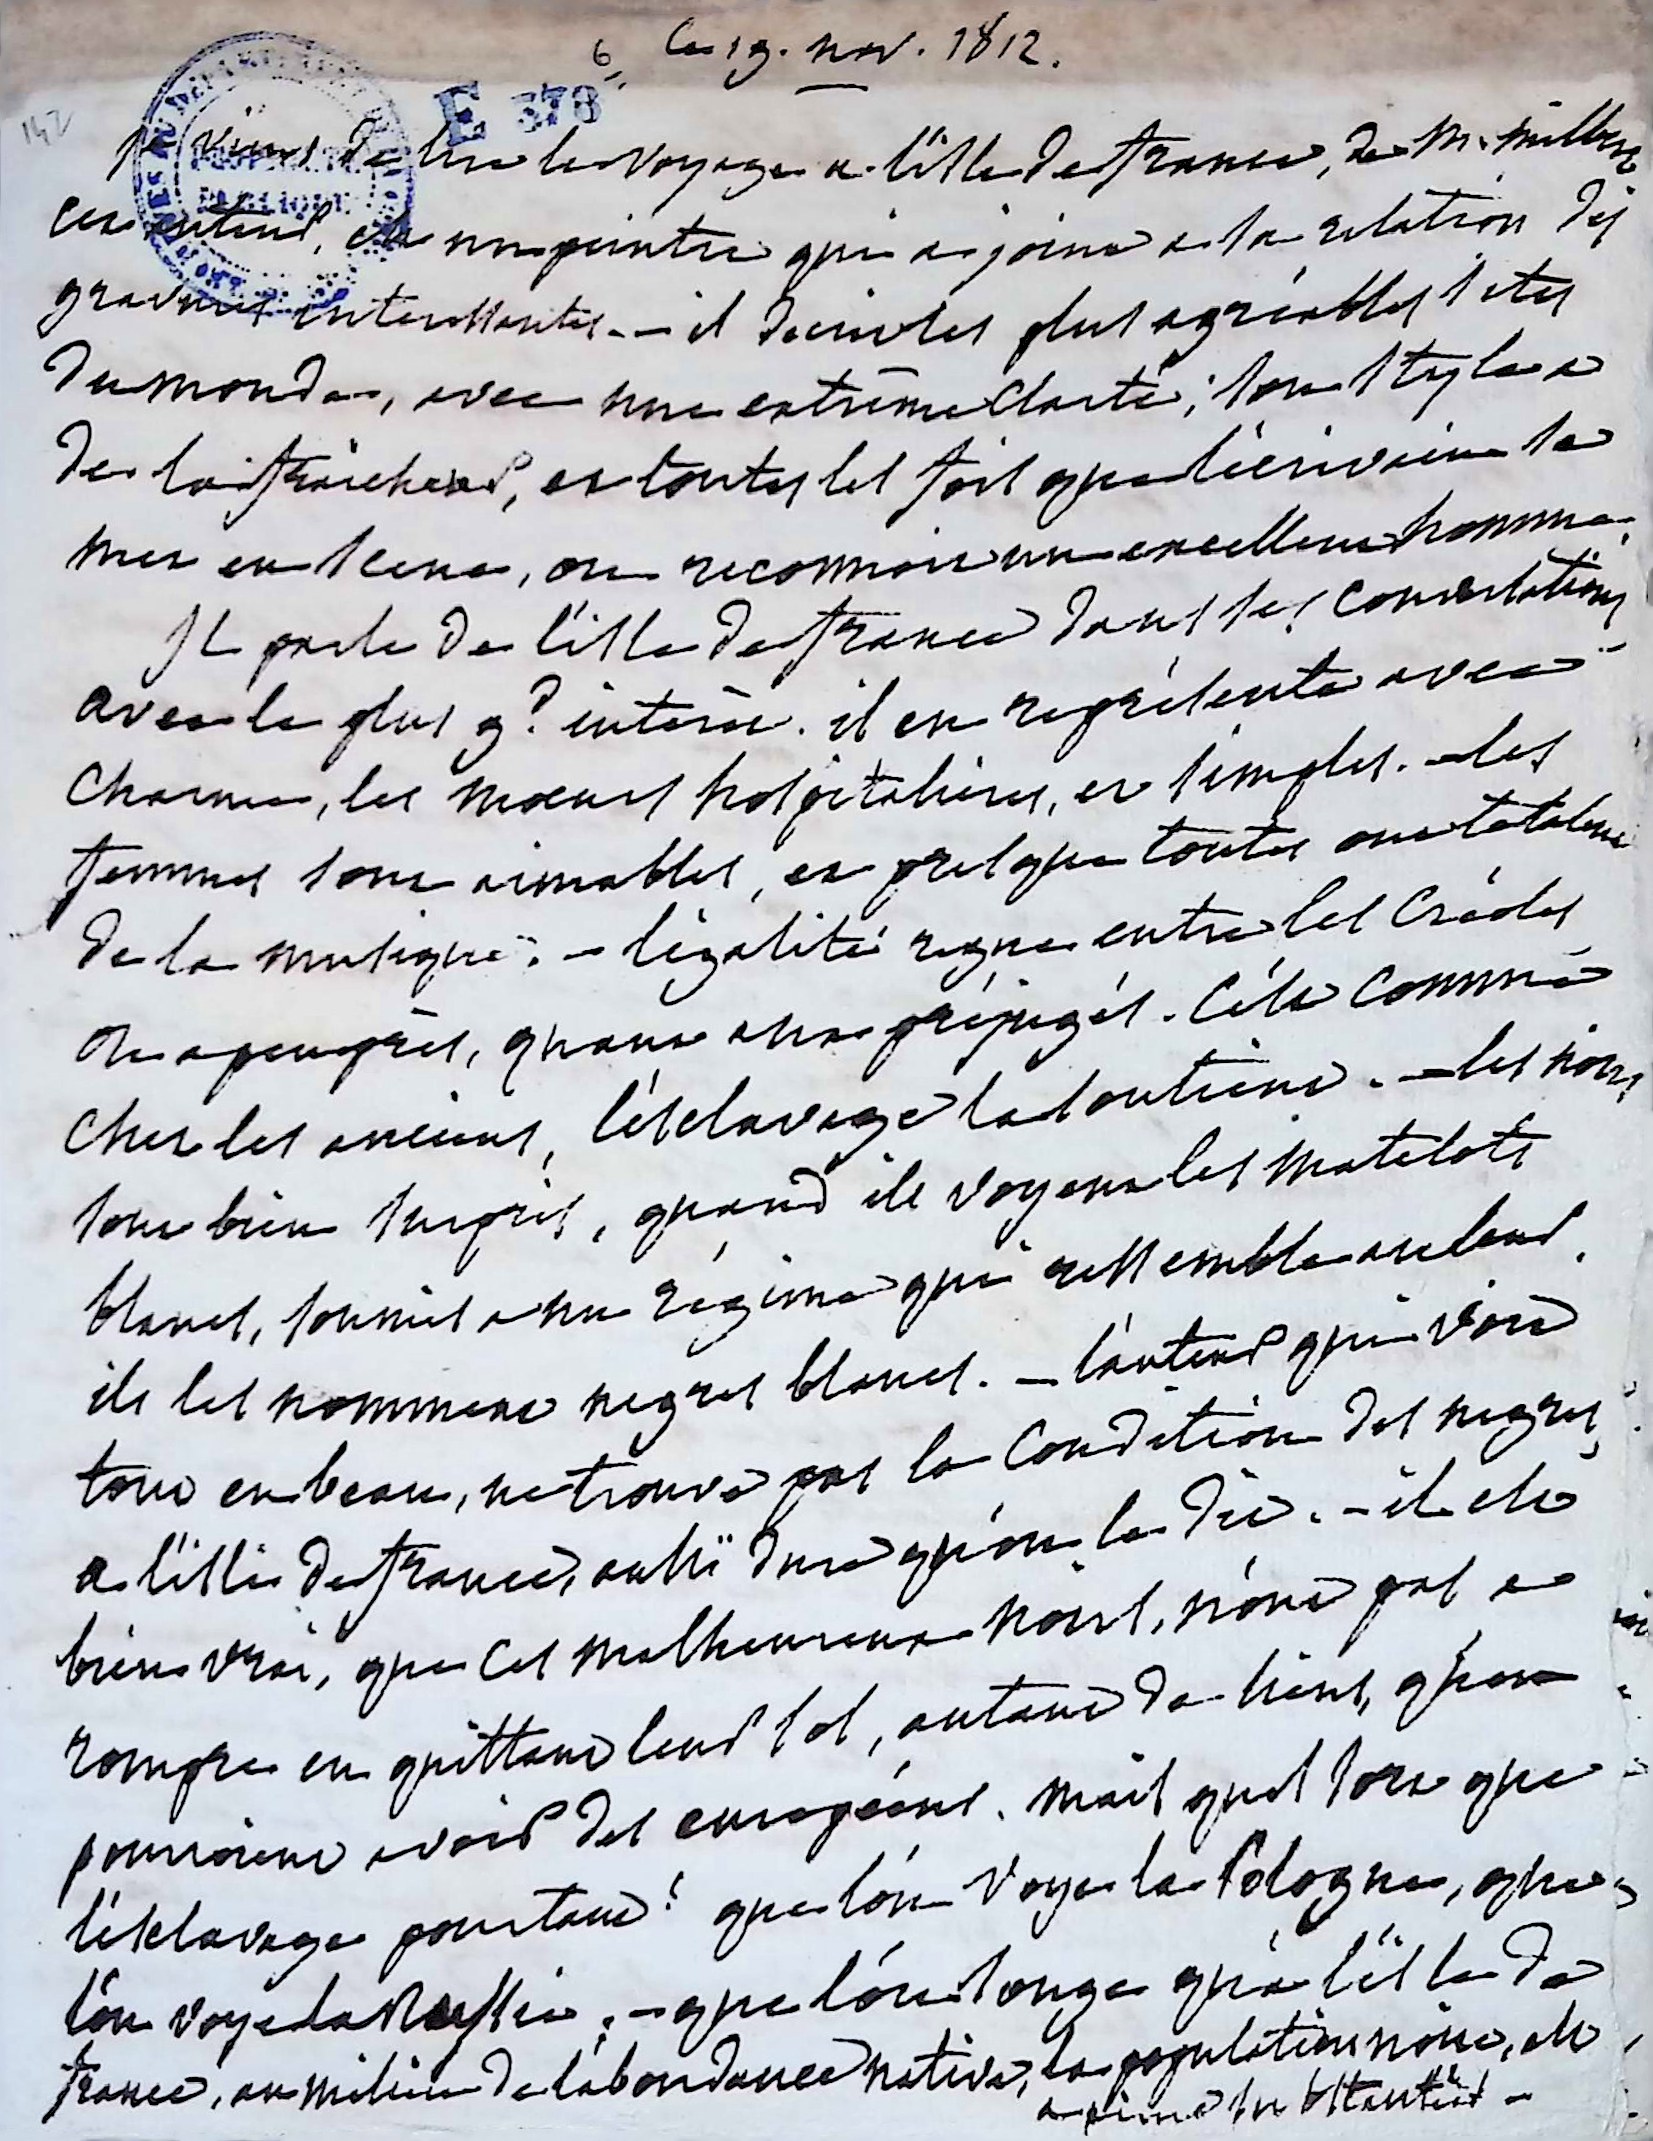 6 Ce 19. nov. 1812.
142
E 378
je viens de lire le voyage a l'isle de france, de M. Milbert
cet auteur, est un peintre qui a joint a la relation des
gravures interessantes. – il decrit les plus agréables sites
du monde, avec une extrême clarté; son style a
de la fraicheur, et toutes les fois que l'écrivain se
met en scene, on reconnoit un excellent homme.
Il parle de l'isle de france dans ses conversations
avec le plus gd. intérêt. il en représente avec
charme, les moeurs hospitalieres, et simples. – les
femmes sont aimables, et presque toutes ont le talent
de la musique. – l'égalité regne entre les Créoles
ou a peu près, quant aux préjugés. C'est comme
chez les anciens, l'esclavage la soutient. – les noirs
sont bien surpris, quand ils voyent les matelots
blancs, soumis a un régime qui ressemble au leur.
ils les nomment negres blancs. – l'auteur qui voit
tout en beau, ne trouve pas la condition des negres,
a l'isle de france, aussi dure qu'on le dit. – il est
bien vrai, que ces malheureux noirs, n'ont pas a
rompre en quittant leur sol, autant de liens, qu'en
pourroient avoir des européens. mais quel sort que
l'esclavage pourtant! que l'on voye la Pologne, que
l'on voye la Russie; – que l'on songe qu'a l'isle de
france, au milieu de l'abondance native, la population noire, est
a peine substantée –